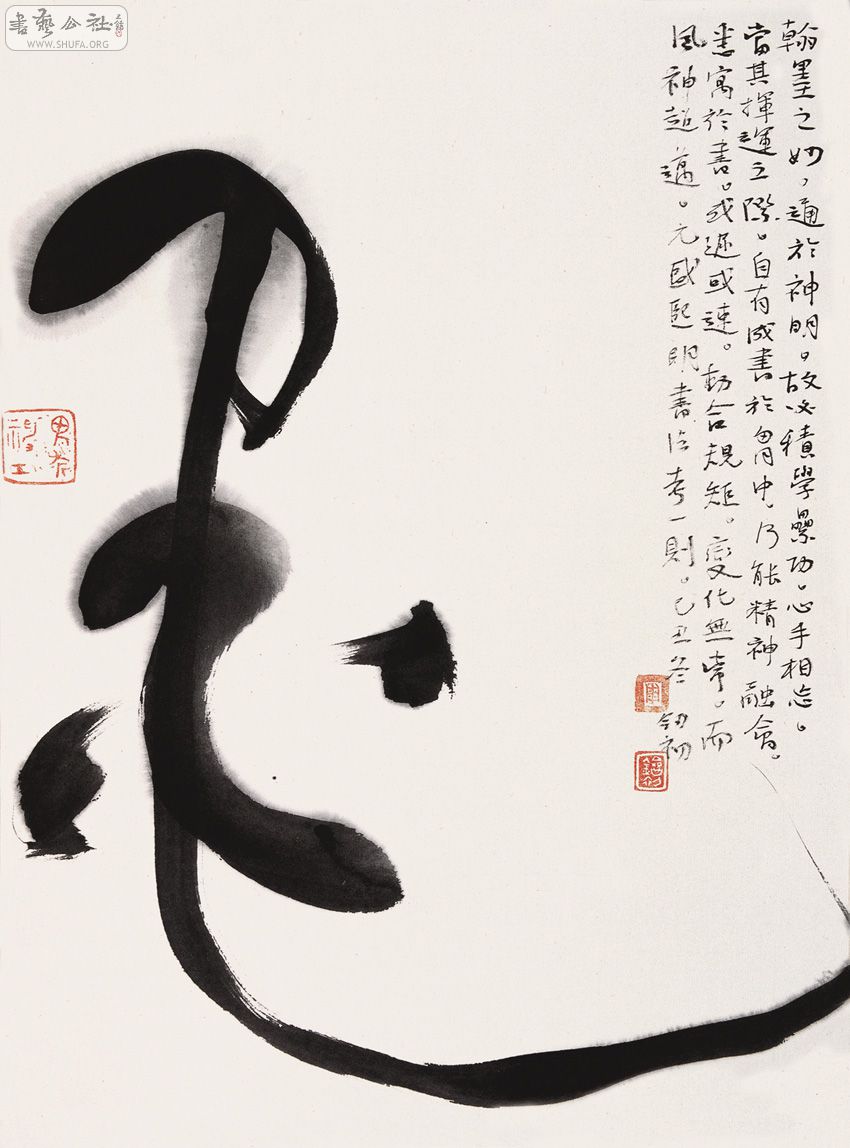 翰墨之妙，通於神明。故必積學累功。心手相忘。
當其揮運之際。自有成書於胷中，乃能精神融會。
悉寓於書。或遲或速。動合規矩。變化無常。而
風神超邁。元盛熙明書法考一則。己丑冬 釗初
書藝公社
WWW.SHUFA.ORG